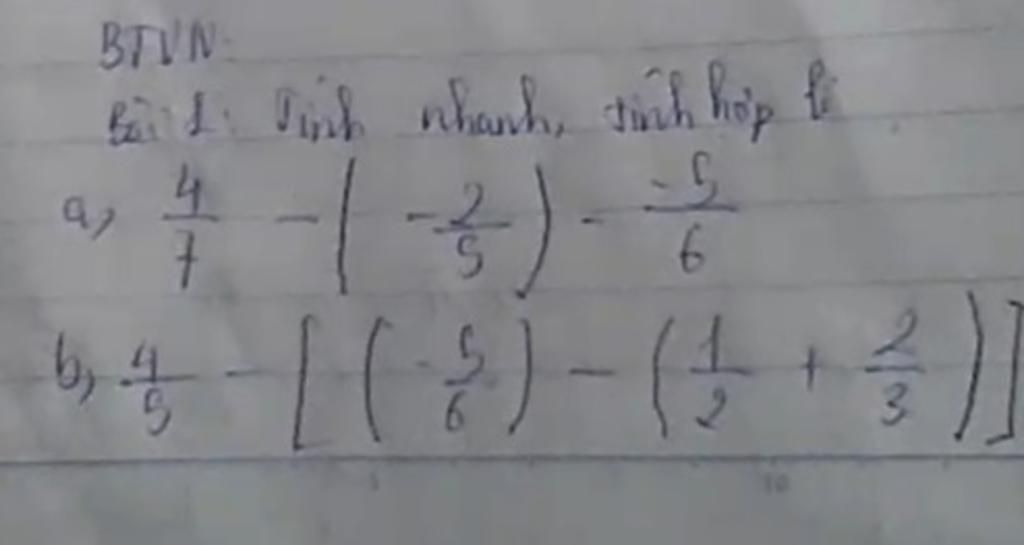 BTVN:
Bài 1: Tính nhanh, tính hợp lí
a, 4/7 - (-2/5) - -5/6
b, 4/5 - [(-5/6) - (1/2 + 2/3)]